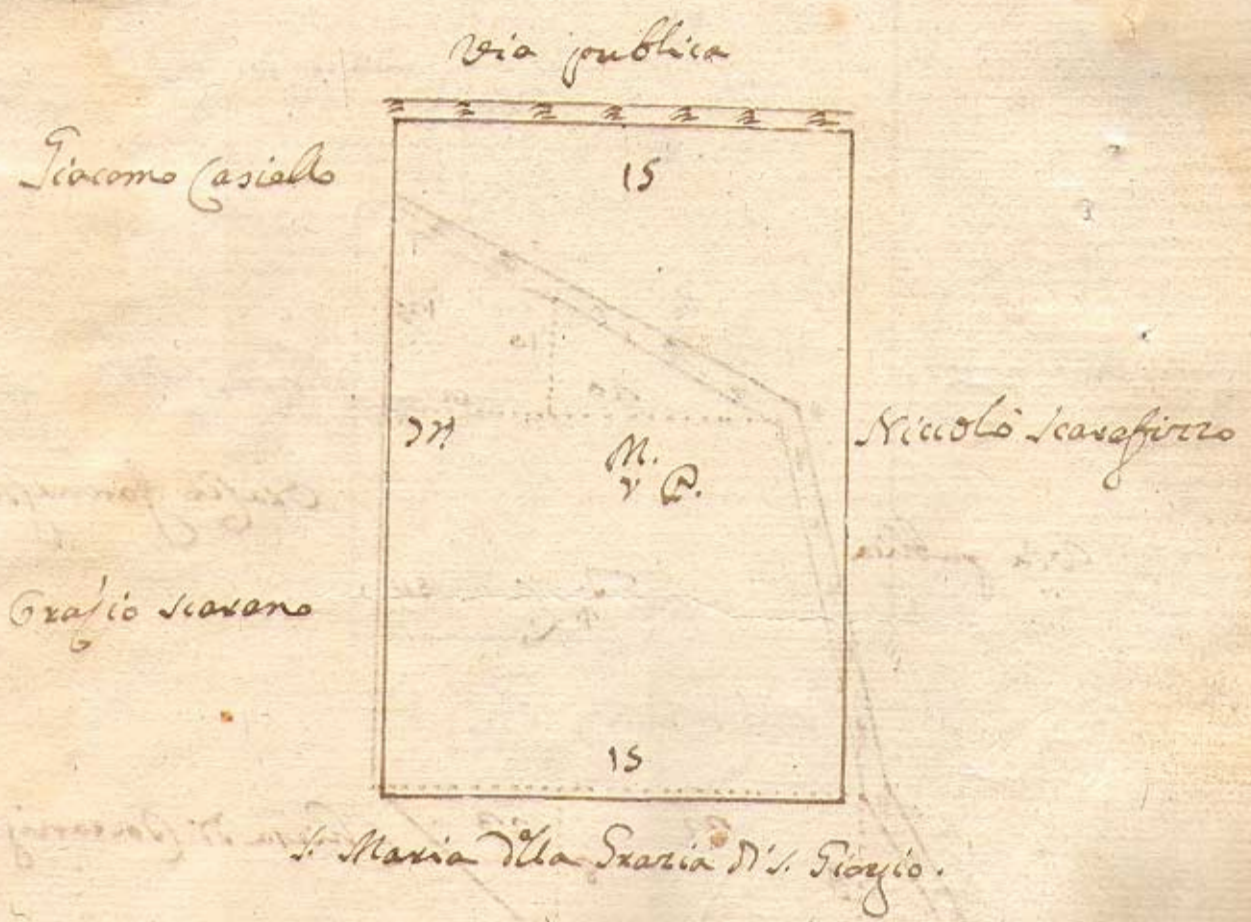 Via publica
Giacomo Casiello
15
M.
V P.
Niccolò Scarafizzo
Orasio Scarano
15
S. Maria della Grazia di S. Giorgio.